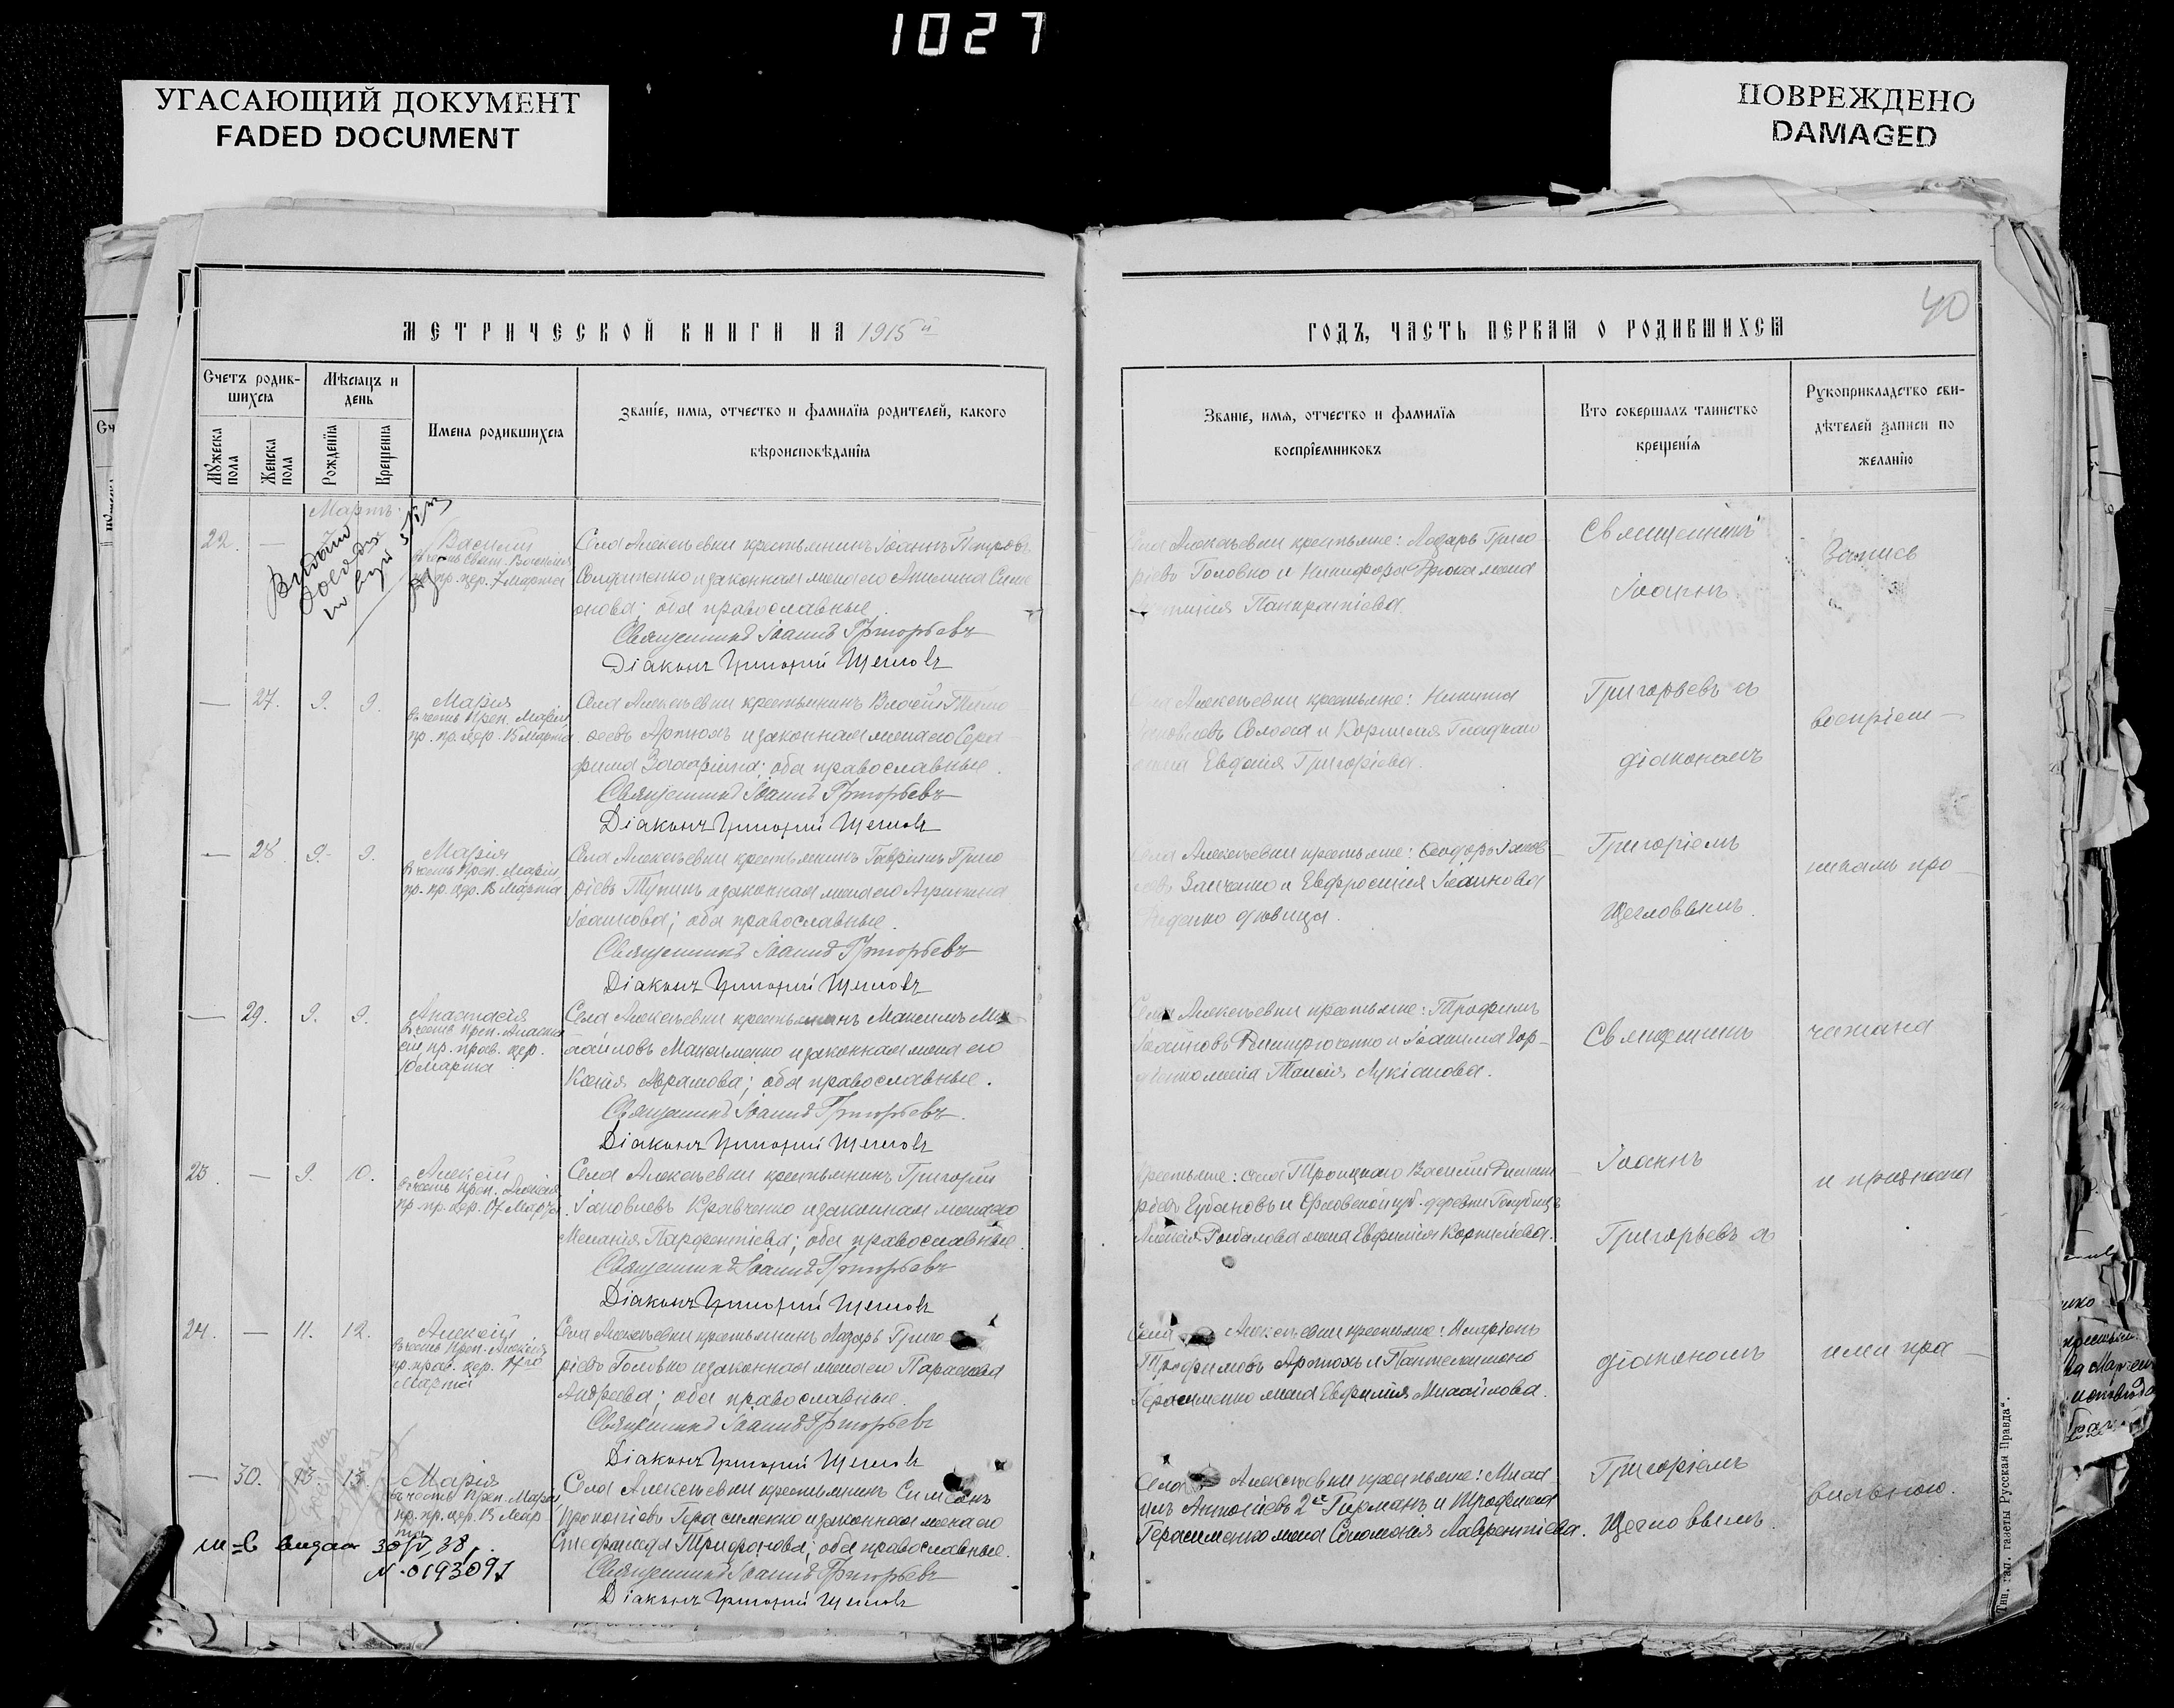 1027
УГАСАЮЩИЙ ДОКУМЕНТ
FADED DOCUMENT
ПОВРЕЖДЕНО
DAMAGED
40
МЕТРИЧЕСКОЙ КНИГИ НА 1915й
ГОДЪ, ЧАСТЬ ПЕРВАЯ О РОДИВШИХСЯ
Счетъ родив-
шихся
Мужеска пола
Женска пола
Мѣсяцъ и
день
Рожденія
Крещенія
Имена родившихся
Званіе, имя, отчество и фамилія родителей, какого
вѣроисповѣданія
Званіе, имя, отчество и фамилія
воспріемниковъ
Кто совершалъ таинство
крещенія
Рукоприкладство сви-
дѣтелей записи по
желанію
Мартъ.
22. — Василий
въ честь Свящ. Василія
пр. цер. 7 Марта
Села Алексѣевки крестьянинъ Іоаннъ Петровъ
и законная жена его Акилина Симе
онова; оба православные.
Священникъ Іоаннъ Григорьевъ
Діаконъ Григорій Щегловъ
Алексѣевки крестьяне: Лазарь Григо-
рьевъ Головко и Никифора жена
Панкратіева.
Священникъ
Іоаннъ
Запись
— 27. 9. 9. Марія
въ честь Преп. Маріи,
пр. пр. цер. 13 Марта
Села Алексѣевки крестьянинъ Власій Тимо
ѳеевъ Артюхъ и законная жена его Сера-
фима Захаріина; оба православные.
Священникъ Іоаннъ Григорьевъ
Діаконъ Григорій Щегловъ
Алексѣевки крестьяне: Никита
Солоха и Корнилія Гладкаго
жена Евдокія Григоріева.
Григорьевъ съ
діакономъ
воспріем-
— 28. 9. 9. Марія
въ честь Преп. Маріи,
пр. пр. цер. 13 Марта
Села Алексѣевки крестьянинъ Гавріилъ Григо
рьевъ и законная жена его Агрипина
Іоаннова; оба православные.
Священникъ Іоаннъ Григорьевъ
Діаконъ Григорій Щегловъ
Села Алексѣевки крестьяне: Ѳеодоръ Іаков-
левъ Заиченко и Евфросинія Іоаннова
дѣвица.
Григоріемъ
Щегловымъ.
никамъ про-
— 29. 9. 9. Анастасія
въ честь Преп. Анаста
сіи, пр. прав. цер.
10 Марта
Села Алексѣевки крестьянинъ Максимъ Ми
хайловъ Максименко и законная жена его
Ксенія Аврамова; оба православные.
Священникъ Іоаннъ Григорьевъ.
Діаконъ Григорій Щегловъ
Села Алексѣевки крестьяне: Трофимъ
Іоанновъ Дмитрюченко и Іоакима Гор-
дѣенко жена Таисія Лукіанова.
Священникъ
читана
23. — 9. 10. Алексій
въ честь Преп. Алексія
пр. пр. цер. 17 Марта.
Села Алексѣевки крестьянинъ Григорій
Іаковлевъ Кравченко и законная жена его
Меланія Парфентіева; оба православные.
Священникъ Іоаннъ Григорьевъ
Діаконъ Григорій Щегловъ
Крестьяне: села Троицкаго Василій Димит
ріевъ Губановъ и Орловской губ. деревни
Алексія Рыбалова жена Евфимія Корниліева.
Іоаннъ
Григорьевъ съ
и признана
24. — 11. 12. Алексій
въ честь Преп. Алексія
пр. прав. цер. 17го
Марта
Села Алексѣевки крестьянинъ Лазарь Григо
рьевъ Головко и законная жена его Параскева
Андреева; оба православные.
Священникъ Іоаннъ Григорьевъ
Діаконъ Григорій Щегловъ
Села Алексѣевки крестьяне: Иларіонъ
Трофимовъ Артюхъ и Пантелеимона
Герасименко жена Евфимія Михайлова.
діакономъ
ими пра-
— 30. 13. 13. Марія
въ честь Преп. Маріи
пр. пр. цер. 13 Мар
та
Села Алексѣевки крестьянинъ Симеонъ
Прокопіевъ Герасименко и законная жена его
Стефанида Трифонова; оба православные.
Священникъ Іоаннъ Григорьевъ
Діаконъ Григорій Щегловъ
Села Алексѣевки крестьяне: Миха
илъ Антоніевъ 2й Германъ и Трофима
Герасименко жена Соломонія Лаврентіева.
Григоріемъ
Щегловымъ.
вильною.
видан 30/IV, 38
N-0193091
Тип. газ. газеты Русская Правда".